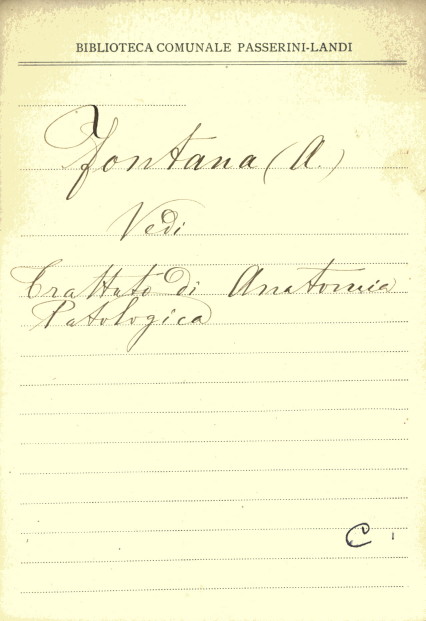 BIBLIOTECA COMUNALE PASSERINI-LANDI
Fontana (A.)
Vedi
Trattato di Anatomia
Patologica
C